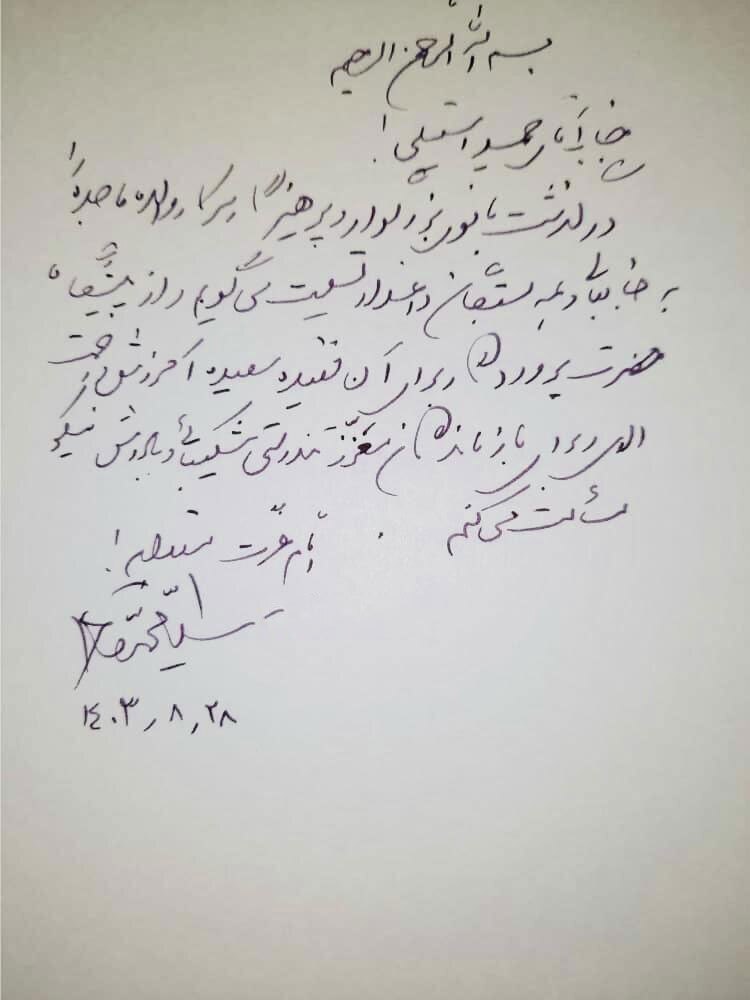 بسم الله الرحمن الرحیم
جناب آقای حمید استیلی!
درگذشت بانوی بزرگوار و پرهیزگار سرکار والده ماجده را
به جنابعالی و همه بستگان داغدار تسلیت می‌گویم و از پیشگاه
حضرت پروردگار برای آن فقیده سعیده آمرزش و رحمت
الهی و برای بازماندگان معزّز تندرستی شکیبائی و پاداش نیکو
مسألت می‌کنم.
ایام عزّت مستدام!
سید محمد
۱۴۰۳٫۸٫۲۸